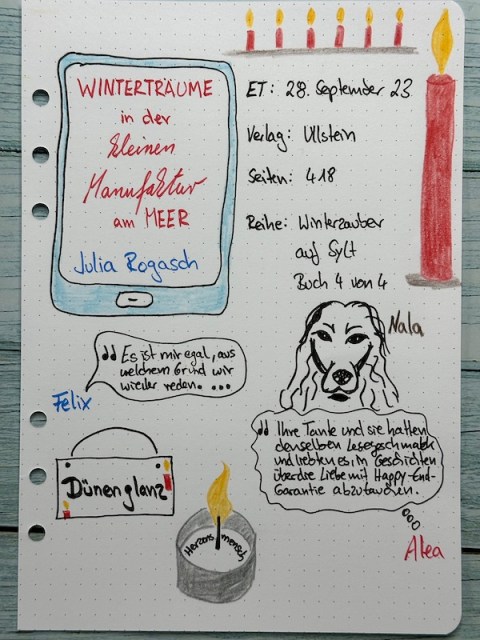 WINTERTRÄUME
in der
kleinen
Manufaktur
am MEER
Julia Rogasch
ET: 28. September 23
Verlag: Ullstein
Seiten: 418
Reihe: Winterzauber
auf Sylt
Buch 4 von 4
Nala
"Es ist mir egal, aus
welchem Grund wir
wieder reden. ...
Felix
"Ihre Tante und sie hatten
denselben Lesegeschmack
und liebten es, in Geschichten
über die Liebe mit Happy-End-
Garantie abzutauchen.
Alea
Dünenglanz
Herzens mensch